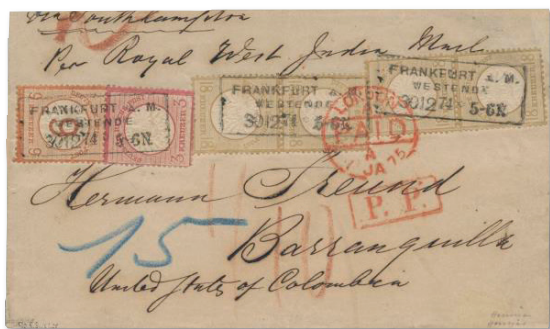 via Southampton
Per Royal West India Mail.
FRANKFURT a. M.
WESTENDE
30 12 74 5-6N
FRANKFURT a. M.
WESTENDE
30 12 74 5-6N
FRANKFURT a. M.
WESTENDE
30 12 74 5-6N
KREUZER
3
18
18
LONDON
PAID
A
1 JA 75
P. P.
Hermann Freund
15
Barranquilla
United States of Colombia